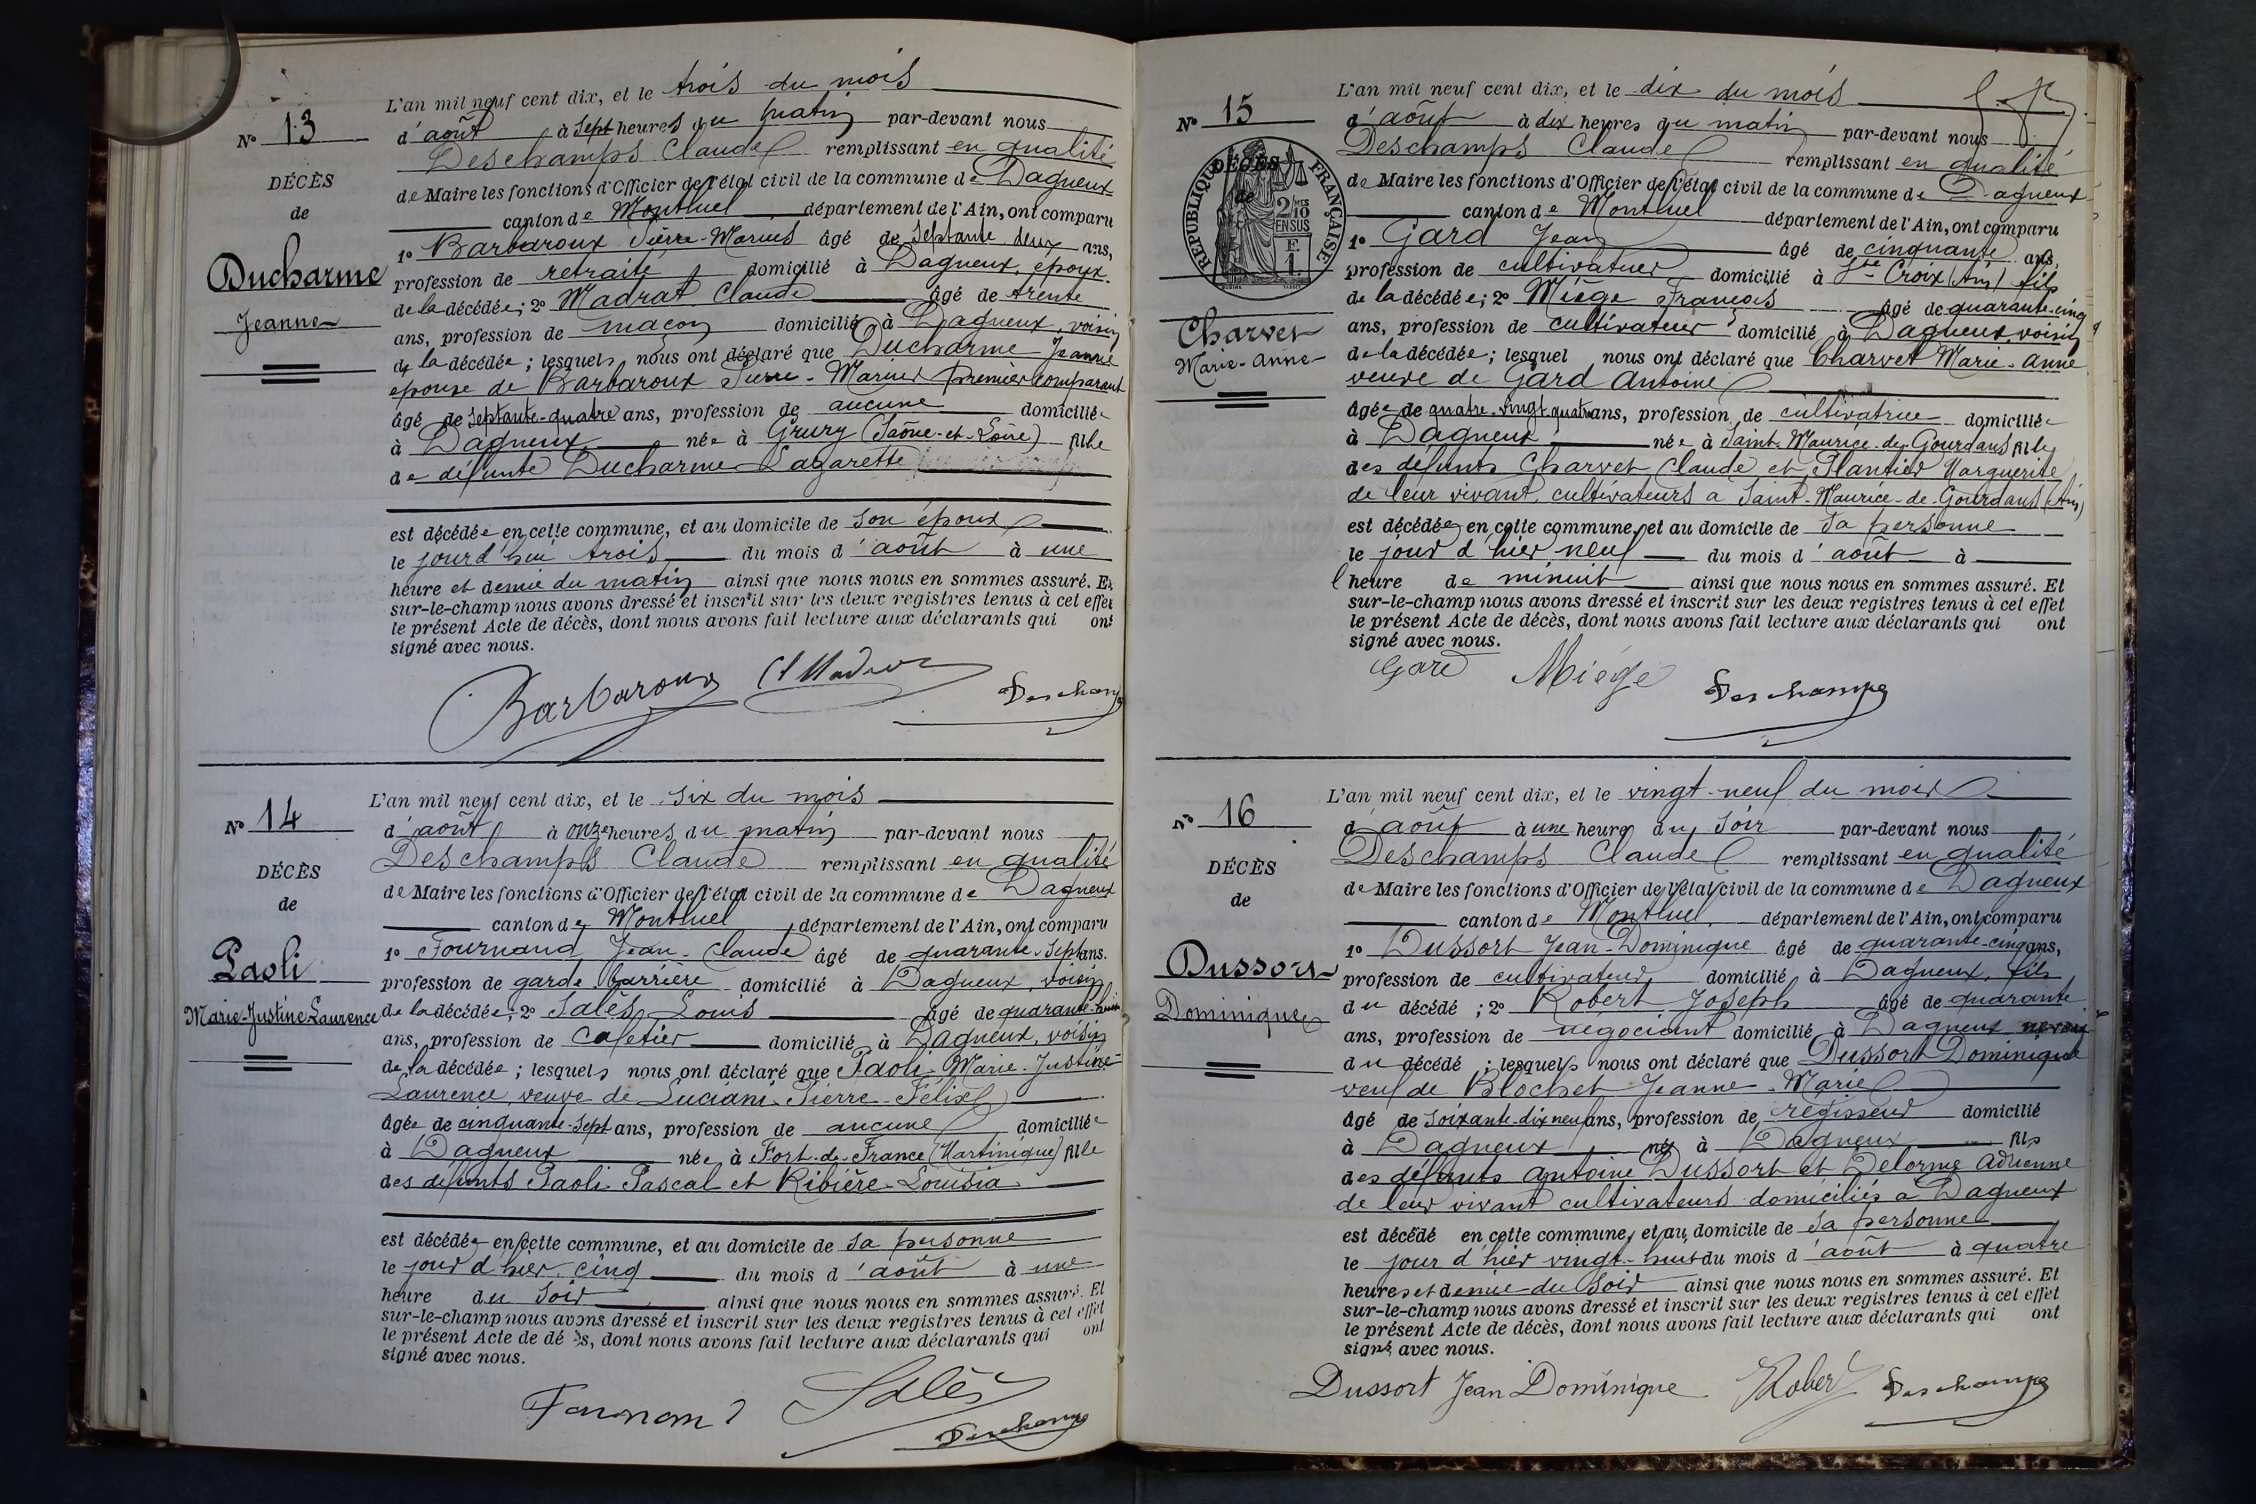 L'an mil neuf cent dix, et le trois du mois
N° 13
d'août à sept heures du matin par-devant nous
Deschamps Claude remplissant en qualité
DÉCÈS
de Maire les fonctions d'Officier de l'état civil de la commune de Dagneux
de
canton de Montluel département de l'Ain, ont comparu
1° Barbaroux Pierre-Marius âgé de septante deux ans,
Ducharme
profession de retraité domicilié à Dagneux, époux
Jeanne
de la décédée; 2° Madrat Claude âgé de trente
ans, profession de maçon domicilié à Dagneux, voisin
de la décédée; lesquels nous ont déclaré que Ducharme Jeanne
épouse de Barbaroux Pierre-Marius premier comparant
âgée de septante-quatre ans, profession de aucune domiciliée
à Dagneux née à Grury (Saône-et-Loire) fille
de défunte Ducharme Lazarette
est décédée en cette commune, et au domicile de son époux
le jourd'hui trois du mois d'août à une
heure et demie du matin ainsi que nous nous en sommes assuré. Et
sur-le-champ nous avons dressé et inscrit sur les deux registres tenus à cet effet
le présent Acte de décès, dont nous avons fait lecture aux déclarants qui ont
signé avec nous.
Barbaroux Cl Madrat Deschamps
L'an mil neuf cent dix, et le six du mois
N° 14
d'août à onze heures du matin par-devant nous
Deschamps Claude remplissant en qualité
DÉCÈS
de Maire les fonctions d'Officier de l'état civil de la commune de Dagneux
de
canton de Montluel département de l'Ain, ont comparu
1° Fournand Jean-Claude âgé de quarante-sept ans.
Paoli
profession de garde barrière domicilié à Dagneux, voisin
Marie-Justine Laurence
de la décédée; 2° Salès Louis âgé de quarante-huit
ans, profession de cafetier domicilié à Dagneux, voisin
de la décédée; lesquels nous ont déclaré que Paoli Marie-Justine-
Laurence, veuve de Luciani Pierre-Félix
âgée de cinquante-sept ans, profession de aucune domiciliée
à Dagneux née à Fort-de-France (Martinique) fille
des défunts Paoli Pascal et Ribière Louisia
est décédée en cette commune, et au domicile de sa personne
le jour d'hier cinq du mois d'août à une
heure du soir ainsi que nous nous en sommes assuré. Et
sur-le-champ nous avons dressé et inscrit sur les deux registres tenus à cet effet
le présent Acte de décès, dont nous avons fait lecture aux déclarants qui ont
signé avec nous.
Fournand Salès
Deschamps
L'an mil neuf cent dix, et le dix du mois
N° 15
d'août à dix heures du matin par-devant nous
Deschamps Claude remplissant en qualité
DÉCÈS
RÉPUBLIQUE FRANÇAISE
2/10 MES EN SUS
F. 1.
de Maire les fonctions d'Officier de l'état civil de la commune de Dagneux
de
canton de Montluel département de l'Ain, ont comparu
1° Gard Jean âgé de cinquante ans,
profession de cultivateur domicilié à Ste Croix (Ain) fils
de la décédée; 2° Miège François âgé de quarante-cinq
Charvet
ans, profession de cultivateur domicilié à Dagneux, voisin
Marie-Anne
de la décédée; lesquel nous ont déclaré que Charvet Marie-Anne
veuve de Gard Antoine
âgée de quatre-vingt quatre ans, profession de cultivatrice domiciliée
à Dagneux née à Saint Maurice de Gourdans fille
des défunts Charvet Claude et Plantier Marguerite
de leur vivant cultivateurs à Saint-Maurice-de-Gourdans (Ain)
est décédée en cette commune, et au domicile de sa personne
le jour d'hier neuf du mois d'août à
l'heure de minuit ainsi que nous nous en sommes assuré. Et
sur-le-champ nous avons dressé et inscrit sur les deux registres tenus à cet effet
le présent Acte de décès, dont nous avons fait lecture aux déclarants qui ont
signé avec nous.
Gard Miége Deschamps
L'an mil neuf cent dix, et le vingt-neuf du mois
N° 16
d'août à une heure du soir par-devant nous
Deschamps Claude remplissant en qualité
DÉCÈS
de Maire les fonctions d'Officier de l'état civil de la commune de Dagneux
de
canton de Montluel département de l'Ain, ont comparu
1° Dussort Jean-Dominique âgé de quarante-cinq ans,
Dussort
profession de cultivateur domicilié à Dagneux, fils
Dominique
du décédé; 2° Robert Joseph âgé de quarante
ans, profession de négociant domicilié à Dagneux
du décédé; lesquels nous ont déclaré que Dussort Dominique
veuf de Blochet Jeanne-Marie
âgé de soixante-dix neuf ans, profession de régisseur domicilié
à Dagneux né à Dagneux fils
des défunts Antoine Dussort et Delorme Adrienne
de leur vivant cultivateurs domiciliés à Dagneux
est décédé en cette commune, et au domicile de sa personne
le jour d'hier vingt-huit du mois d'août à quatre
heures et demie du soir ainsi que nous nous en sommes assuré. Et
sur-le-champ nous avons dressé et inscrit sur les deux registres tenus à cet effet
le présent Acte de décès, dont nous avons fait lecture aux déclarants qui ont
signé avec nous.
Dussort Jean Dominique Robert Deschamps